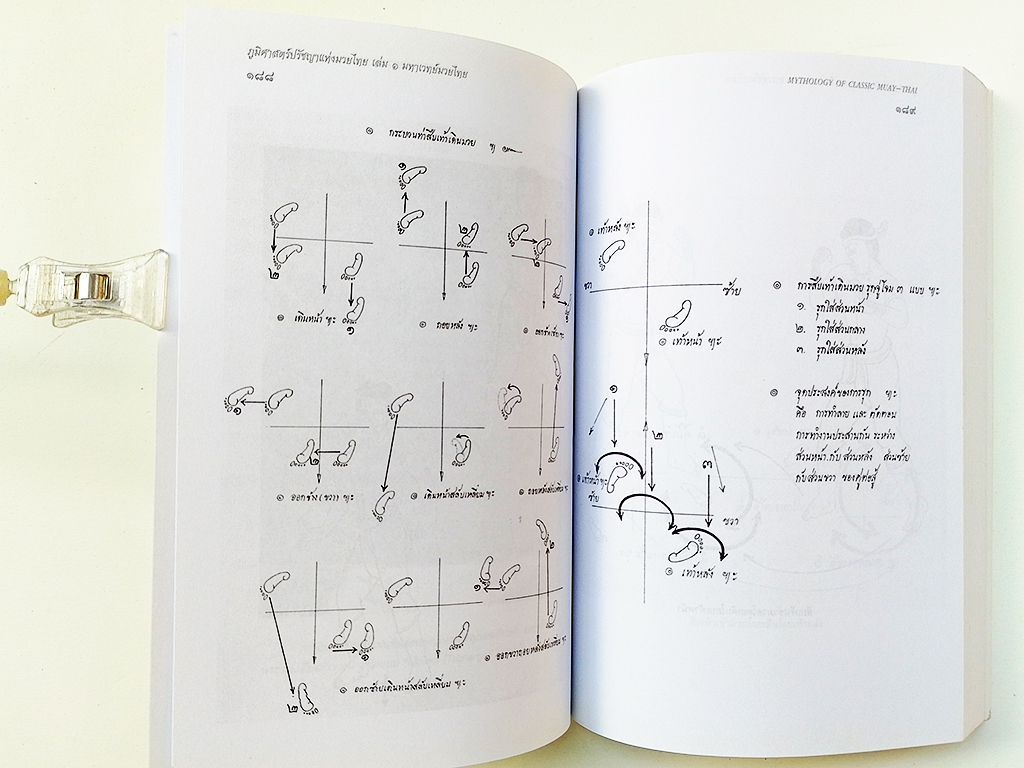 ภูมิศาสตร์ปรัชญาแห่งมวยไทย เล่ม ๑ มหาเวทย์มวยไทย
๑๘๘
๏ กระบวนท่าสืบเท้าเดินมวย ฯ
๑
๒
๒
๒
๑
๏ เดินหน้า ฯะ
๏ ถอยหลัง ฯะ
๑
๒
๏ ออกข้าง (ขวา) ฯะ
๏ เดินหน้าสลับเหลี่ยม ฯะ
๏ ถอยหลังสลับเหลี่ยม ฯะ
๑
๒
๑
๒
๏ ออกซ้ายเดินหน้าสลับเหลี่ยม ฯะ
๏ ออกขวาถอยหลังสลับเหลี่ยม ฯะ
MYTHOLOGY OF CLASSIC MUAY-THAI
๑๘๙
๏ เท้าหลัง ฯะ
ขวา
ซ้าย
๏ เท้าหน้า ฯะ
๑
๒
๓
๏ เท้าหน้า ฯะ
ซ้าย
ขวา
๏ เท้าหลัง ฯะ
๏ การสืบเท้าเดินมวย รุกจู่โจม ๓ แบบ ฯะ
๑. รุกใส่ส่วนหน้า
๒. รุกใส่ส่วนกลาง
๓. รุกใส่ส่วนหลัง
๏ จุดประสงค์ของการรุก ฯะ
คือ การทำลาย และ ตัดตอน
การทำงานประสานกัน ระหว่าง
ส่วนหน้า กับ ส่วนหลัง ส่วนซ้าย
กับส่วนขวา ของคู่ต่อสู้